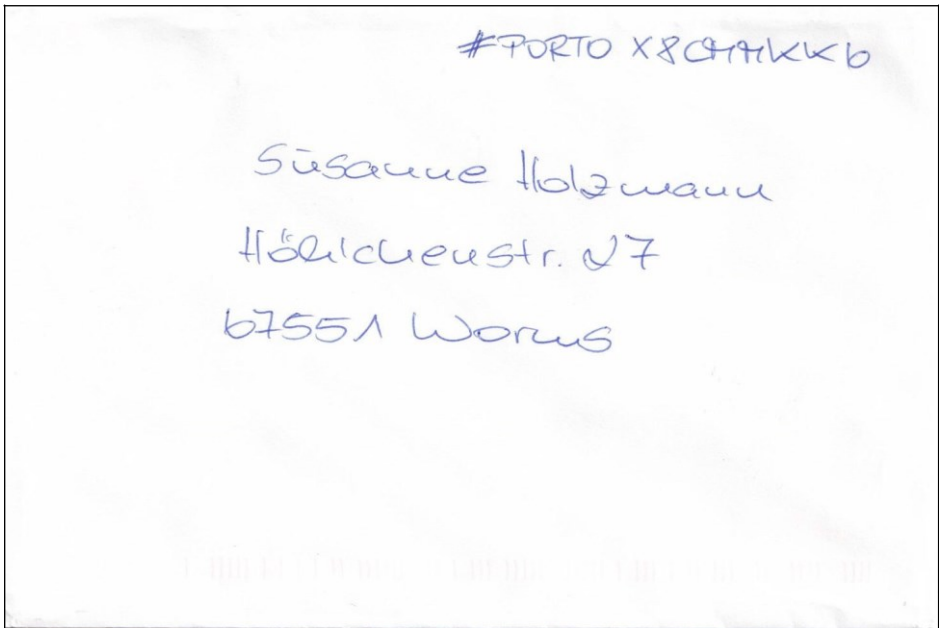 #PORTO X8CMMKK6
Susanne Holzmann
Höhlchenstr. 27
67551 Worms